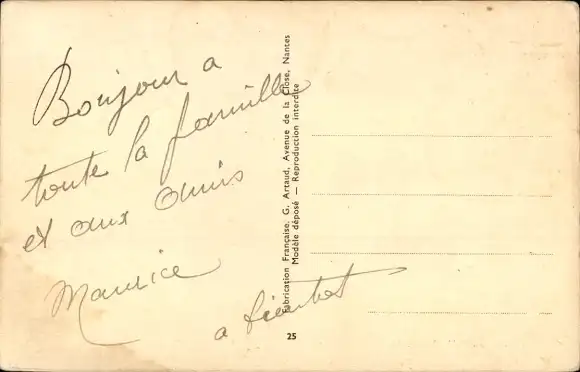 Bonjour a
toute la famille
et aux amis
Maurice
a
Fabrication Française, G. Artaud, Avenue de la Close, Nantes
Modèle déposé — Reproduction interdite
25